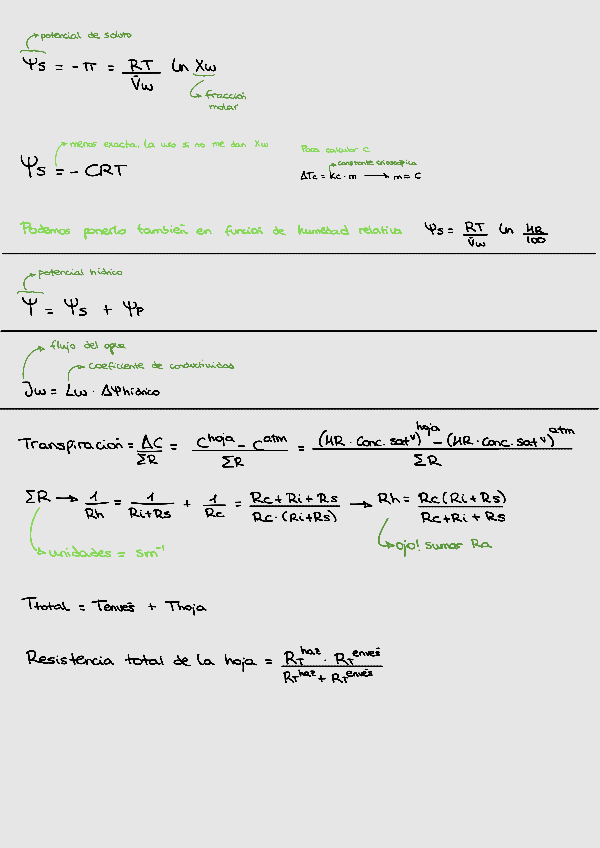 potencial de soluto
Ψs = -π = RT/V̄w ln Xw
fracción molar
menos exacta, la uso si no me dan Xw
Ψs = - CRT
Para calcular C
constante crioscópica
ΔTc = kc · m → m = C
Podemos ponerlo también en función de humedad relativa Ψs = RT/V̄w ln HR/100
potencial hídrico
Ψ = Ψs + Ψp
flujo del agua
coeficiente de conductividad
Jw = Lw · ΔΨhídrico
Transpiración = ΔC/ΣR = (C^hoja - C^atm)/ΣR = ((HR · Conc. sat^v)^hoja - (HR · Conc. sat^v)^atm)/ΣR
ΣR → 1/Rh = 1/(Ri+Rs) + 1/Rc = (Rc + Ri + Rs)/(Rc · (Ri+Rs)) → Rh = Rc(Ri+Rs)/(Rc+Ri+Rs)
unidades = sm⁻¹
ojo! sumar Ra
Ttotal = Tenvés + Thoja
Resistencia total de la hoja = (R_T^haz · R_T^envés)/(R_T^haz + R_T^envés)